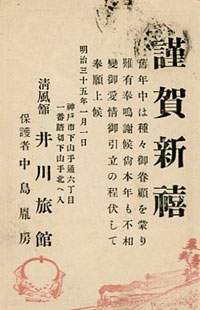 謹賀新禧
舊年中は種々御眷顧を蒙り
難有奉鳴謝候尚本年も不相
變御愛情御引立の程伏して
奉願上候
明治三十五年一月一日
神戸市下山手通六丁目
一番踏切下山手北へ入
清風舘
井川旅館
保護者 中島胤房